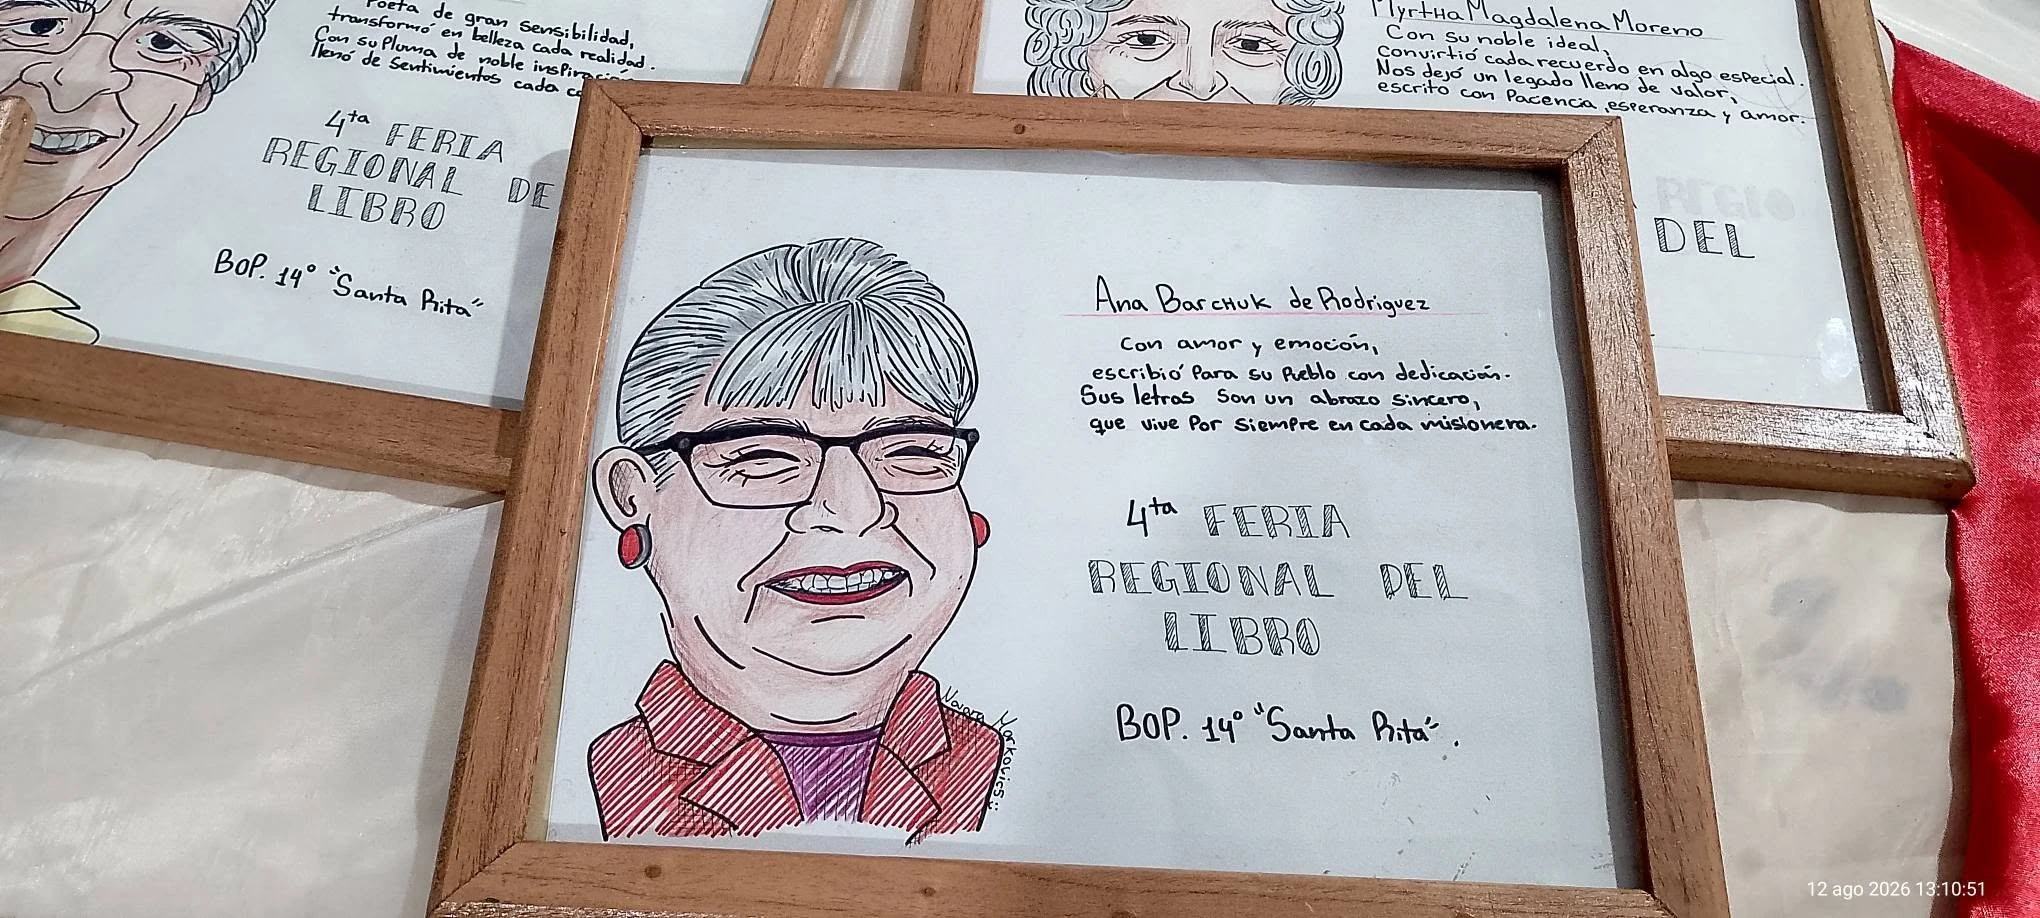 Poeta de gran sensibilidad,
transformó en belleza cada realidad.
Con su Pluma de noble inspiración
llenó de Sentimientos cada
4ta FERIA
REGIONAL DE
LIBRO
BOP. 14° "Santa Rita"
Myrtha Magdalena Moreno
Con su noble ideal,
convirtió cada recuerdo en algo especial.
Nos dejó un legado lleno de valor,
escrito con Paciencia, esperanza y amor.
REGIO
DEL
Ana Barchuk de Rodriguez
Con amor y emoción,
escribió Para su Pueblo con dedicación.
Sus letras son un abrazo sincero,
que vive Por Siempre en cada misionera.
4ta FERIA
REGIONAL DEL
LIBRO
BOP. 14° "Santa Rita".
Markovics
12 ago 2026 13:10:51